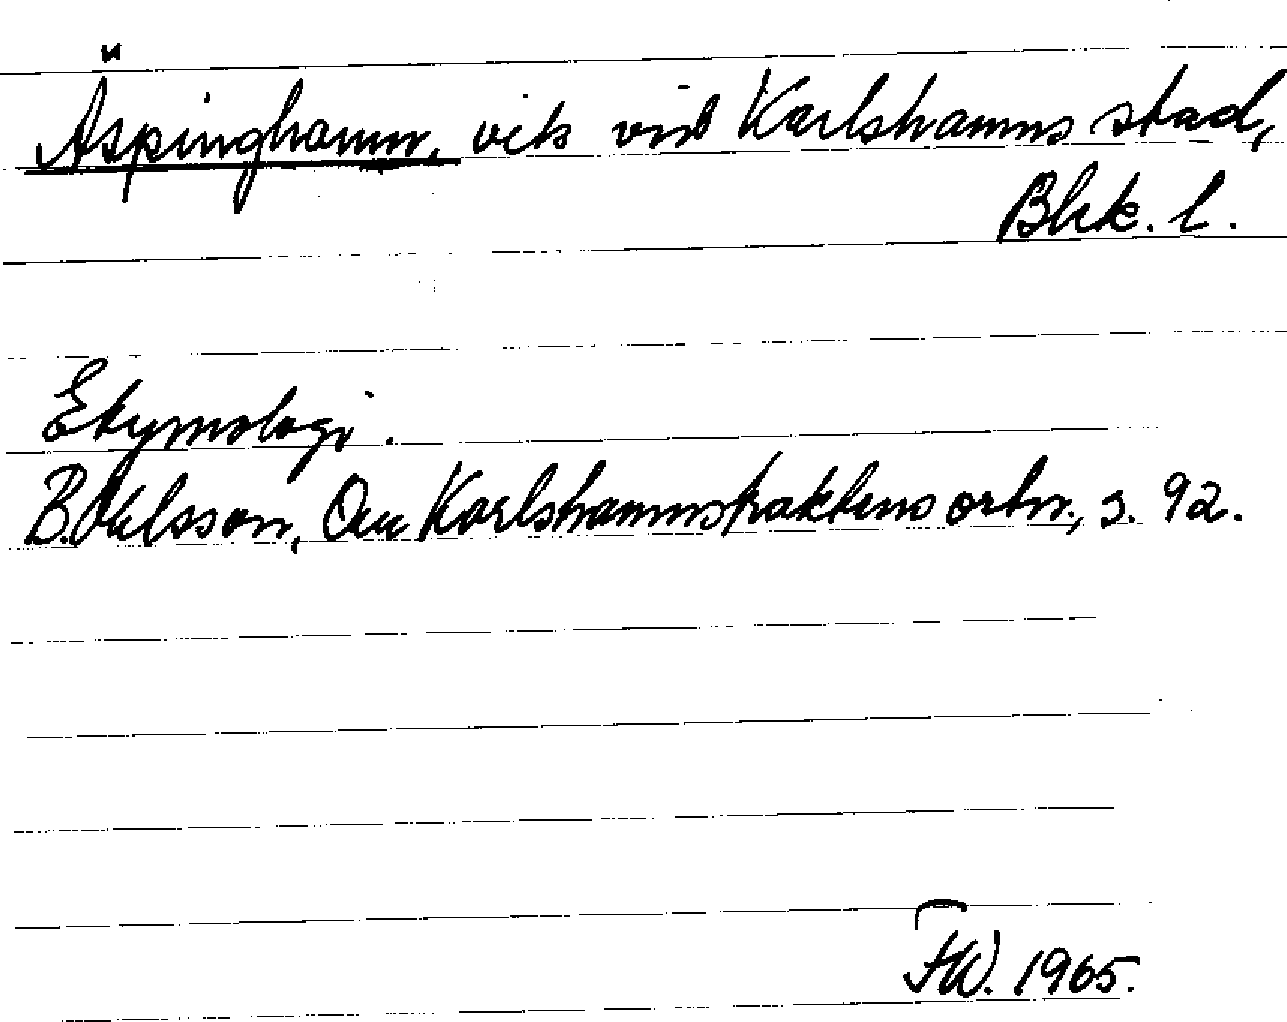 Äspinghamn, vik vid Karlshamns stad,
Blek. l.
Etymologi.
B. Ohlsson, Om Karlshamnstraktens ortn., s. 92.
FW. 1965.